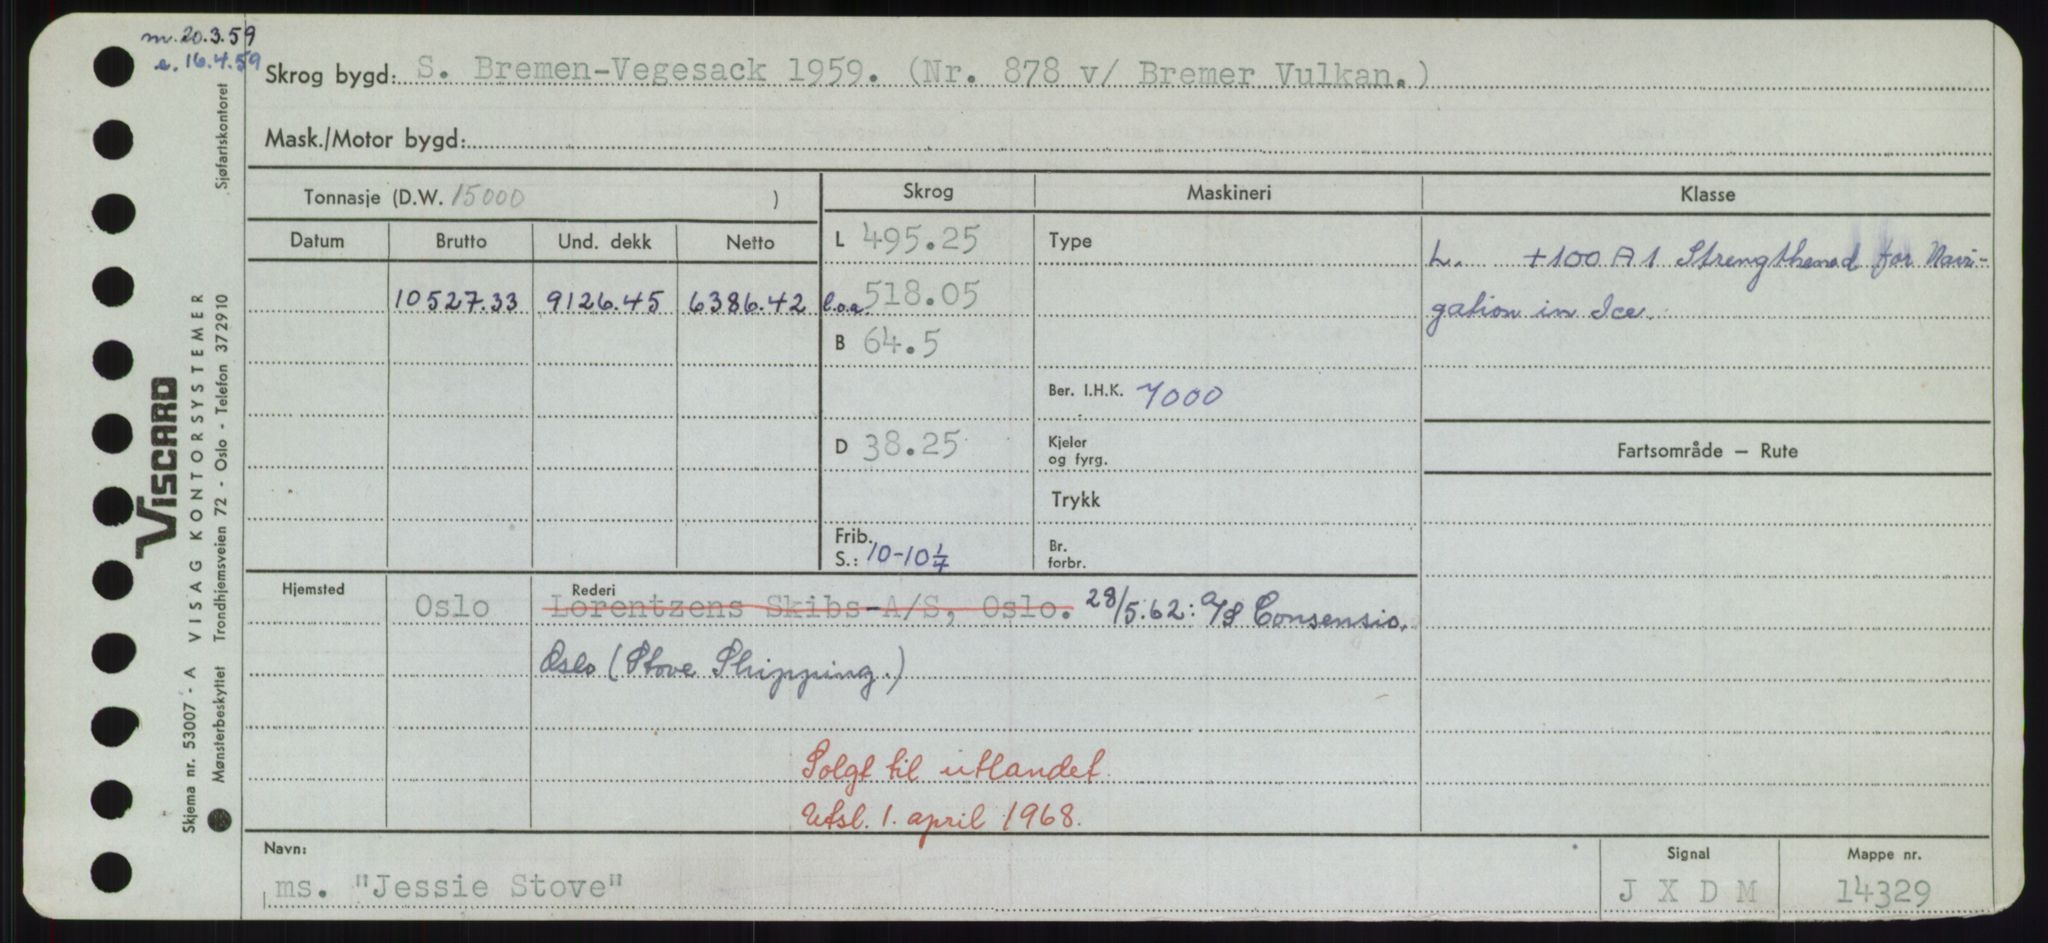 m. 20.3.59
e. 16.4.59
Skrog bygd: S. Bremen-Vegesack 1959. (Nr. 878 v/ Bremer Vulkan.)
Mask./Motor bygd:
Tonnasje (D.W. 15000 )
Skrog
Maskineri
Klasse
Datum Brutto Und. dekk Netto
L 495.25
Type
L. +100 A 1 Strengthened for Navi-
10527.33 9126.45 6386.42
l.o.a. 518.05
gation in Ice.
B 64.5
Ber. I.H.K. 7000
D 38.25
Kjeler
og fyrg.
Fartsområde — Rute
Trykk
Frib.
S.: 10-10 1/4
Br.
forbr.
Hjemsted
Rederi
Oslo
Lorentzens Skibs-A/S, Oslo. 28/5.62: A/S Consensio,
Oslo (Stove Shipping.)
Solgt til utlandet
Utsl. 1. april 1968.
Navn:
ms. "Jessie Stove"
Signal
J X D M
Mappe nr.
14329
VISCARD
Skjema nr. 53007 - A VISAG KONTORSYSTEMER
Mønsterbeskyttet Trondhjemsveien 72 - Oslo - Telefon 372910 Sjøfartskontoret